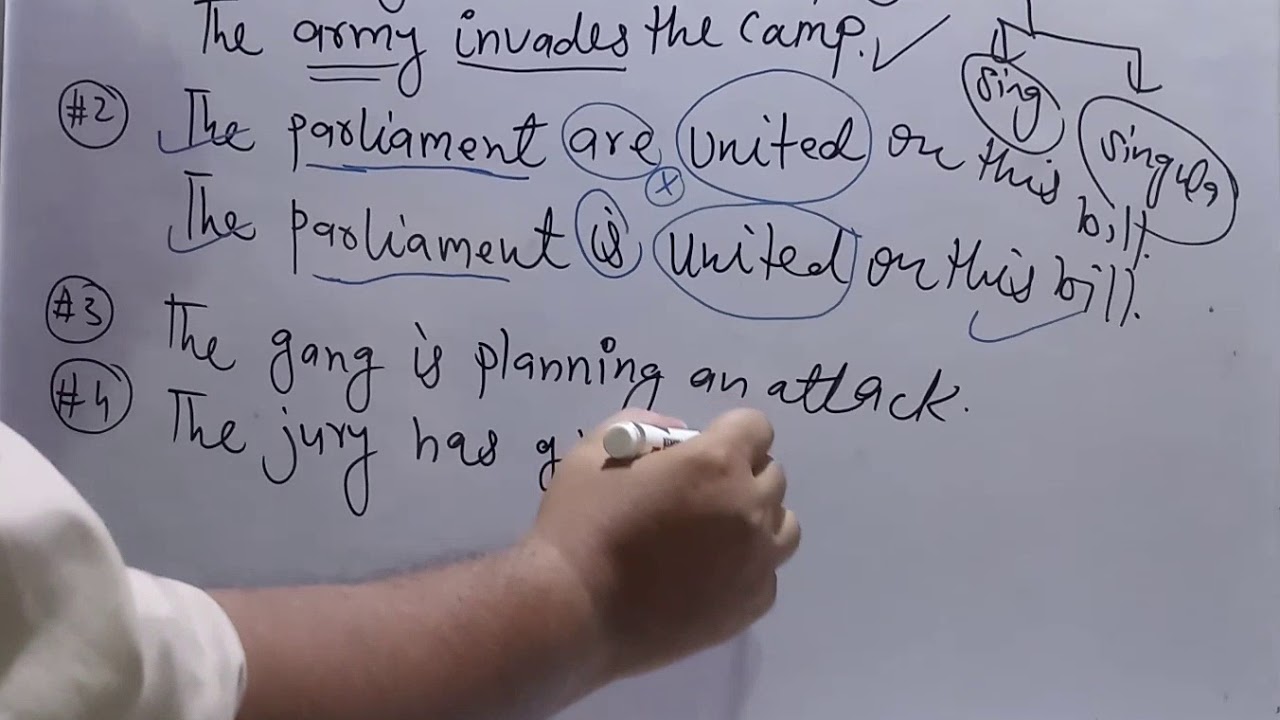 The army invades the camp. ✓
sing
singula
#2 The parliament are united on this bill.
x
The parliament is united on this bill.
#3 The gang is planning an attack.
#4 The jury has gi